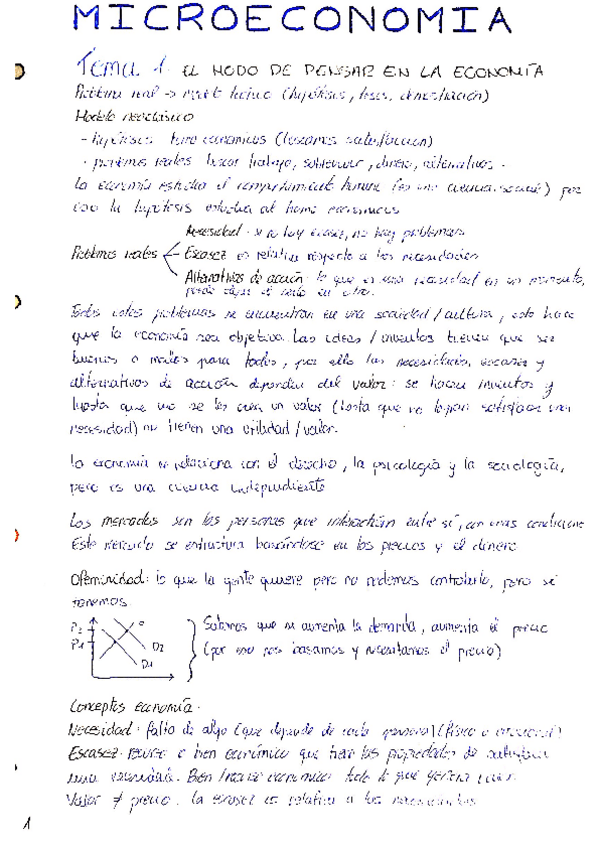 MICROECONOMIA
Tema 1. EL MODO DE PENSAR EN LA ECONOMÍA
Problema real -> modelo teórico (hipótesis, tesis, demostración)
Modelo neoclásico
- hipótesis: homo economicus (buscamos satisfacción)
- problemas reales: buscar trabajo, sobrevivir, dinero, alternativas.
La economía estudia el comportamiento humano (es una ciencia social) por
eso la hipótesis estudia al homo economicus
Necesidad: si no hay escasez, no hay problemas
Problemas reales Escasez es relativa respecto a las necesidades
Alternativas de acción: lo que es una necesidad en un momento,
puede dejar de serlo en otro.
Todos estos problemas se encuentran en una sociedad / cultura, esto hace
que la economía sea objetiva. Las ideas / inventos tienen que ser
buenos o malos para todos, por ello las necesidades, escasez y
alternativas de acción dependen del valor: se hacen inventos y
hasta que no se les crea un valor (hasta que no logran satisfacer una
necesidad) no tienen una utilidad / valor.
La economía se relaciona con el derecho, la psicología y la sociología,
pero es una ciencia independiente
Los mercados son las personas que interactúan entre sí, con unas condiciones
Este mercado se estructura basándose en los precios y el dinero
Ofelimidad: lo que la gente quiere pero no podemos controlarlo, pero sí
tenemos
P2
P1
O
D2
D1
Sabemos que si aumenta la demanda, aumenta el precio
(por eso nos basamos y necesitamos el precio)
Conceptos economía.
Necesidad: falta de algo (que depende de cada persona) (física o emocional)
Escasez: recurso o bien económico que tiene las propiedades de satisfacer
una necesidad. Bien / recurso económico: todo lo que genera
Valor ≠ precio. La escasez es relativa a las necesidades
1